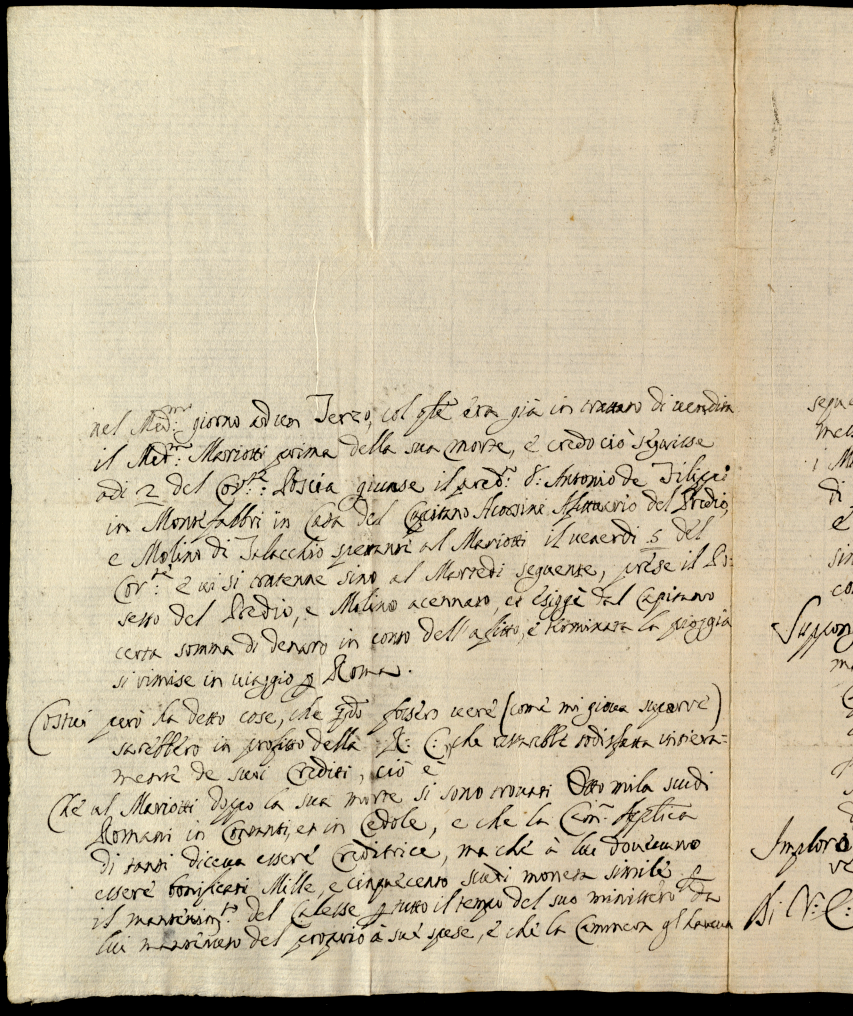 nel Med:mo giorno ad un Terzo, col qle era già in trattato di vendita
il Med:mo Mariotti prima della sua morte, e credo ciò seguisse
adi 2 del Corrte: Poscia giunse il pred:o S: Antonio de Filippi
in Monte fabbri in Casa del Capitano Affittuario del Predio,
e Molino di Talacchio spettante al Mariotti il venerdi 5 del
Corte: e vi si tratenne sino al Martedi seguente, prese il Pos:
sesso del Predio, e Molino acennato, et esiggè dal Capitano
certa somma di denaro in conto dell'afitto, e terminata la pioggia
si rimise in viaggio p Roma.
Costui però ha detto cose, che qdo fossero vere (come mi giova
sarebbero in profitto della R: C: che restarebbe sodisfatta intiera=
mente de suoi Crediti, ciò è
Che al Mariotti doppo la sua morte si sono trovati Otto mila scudi
Romani in Contanti, et in Cedole, e che la Cam:
di tanti diceva essere Creditrice, ma che à lui dovevano
essere bonificati Mille, e cinquecento scudi moneta simile p
il mantenim:to del Calesse p tutto il tempo del suo ministero da
lui mantenuto del proprio à sue spese, e che la Camera gl'haveva
segu
i M
di
e
sin
co
Suppon
ma
Imploro
ve
Di V: C: